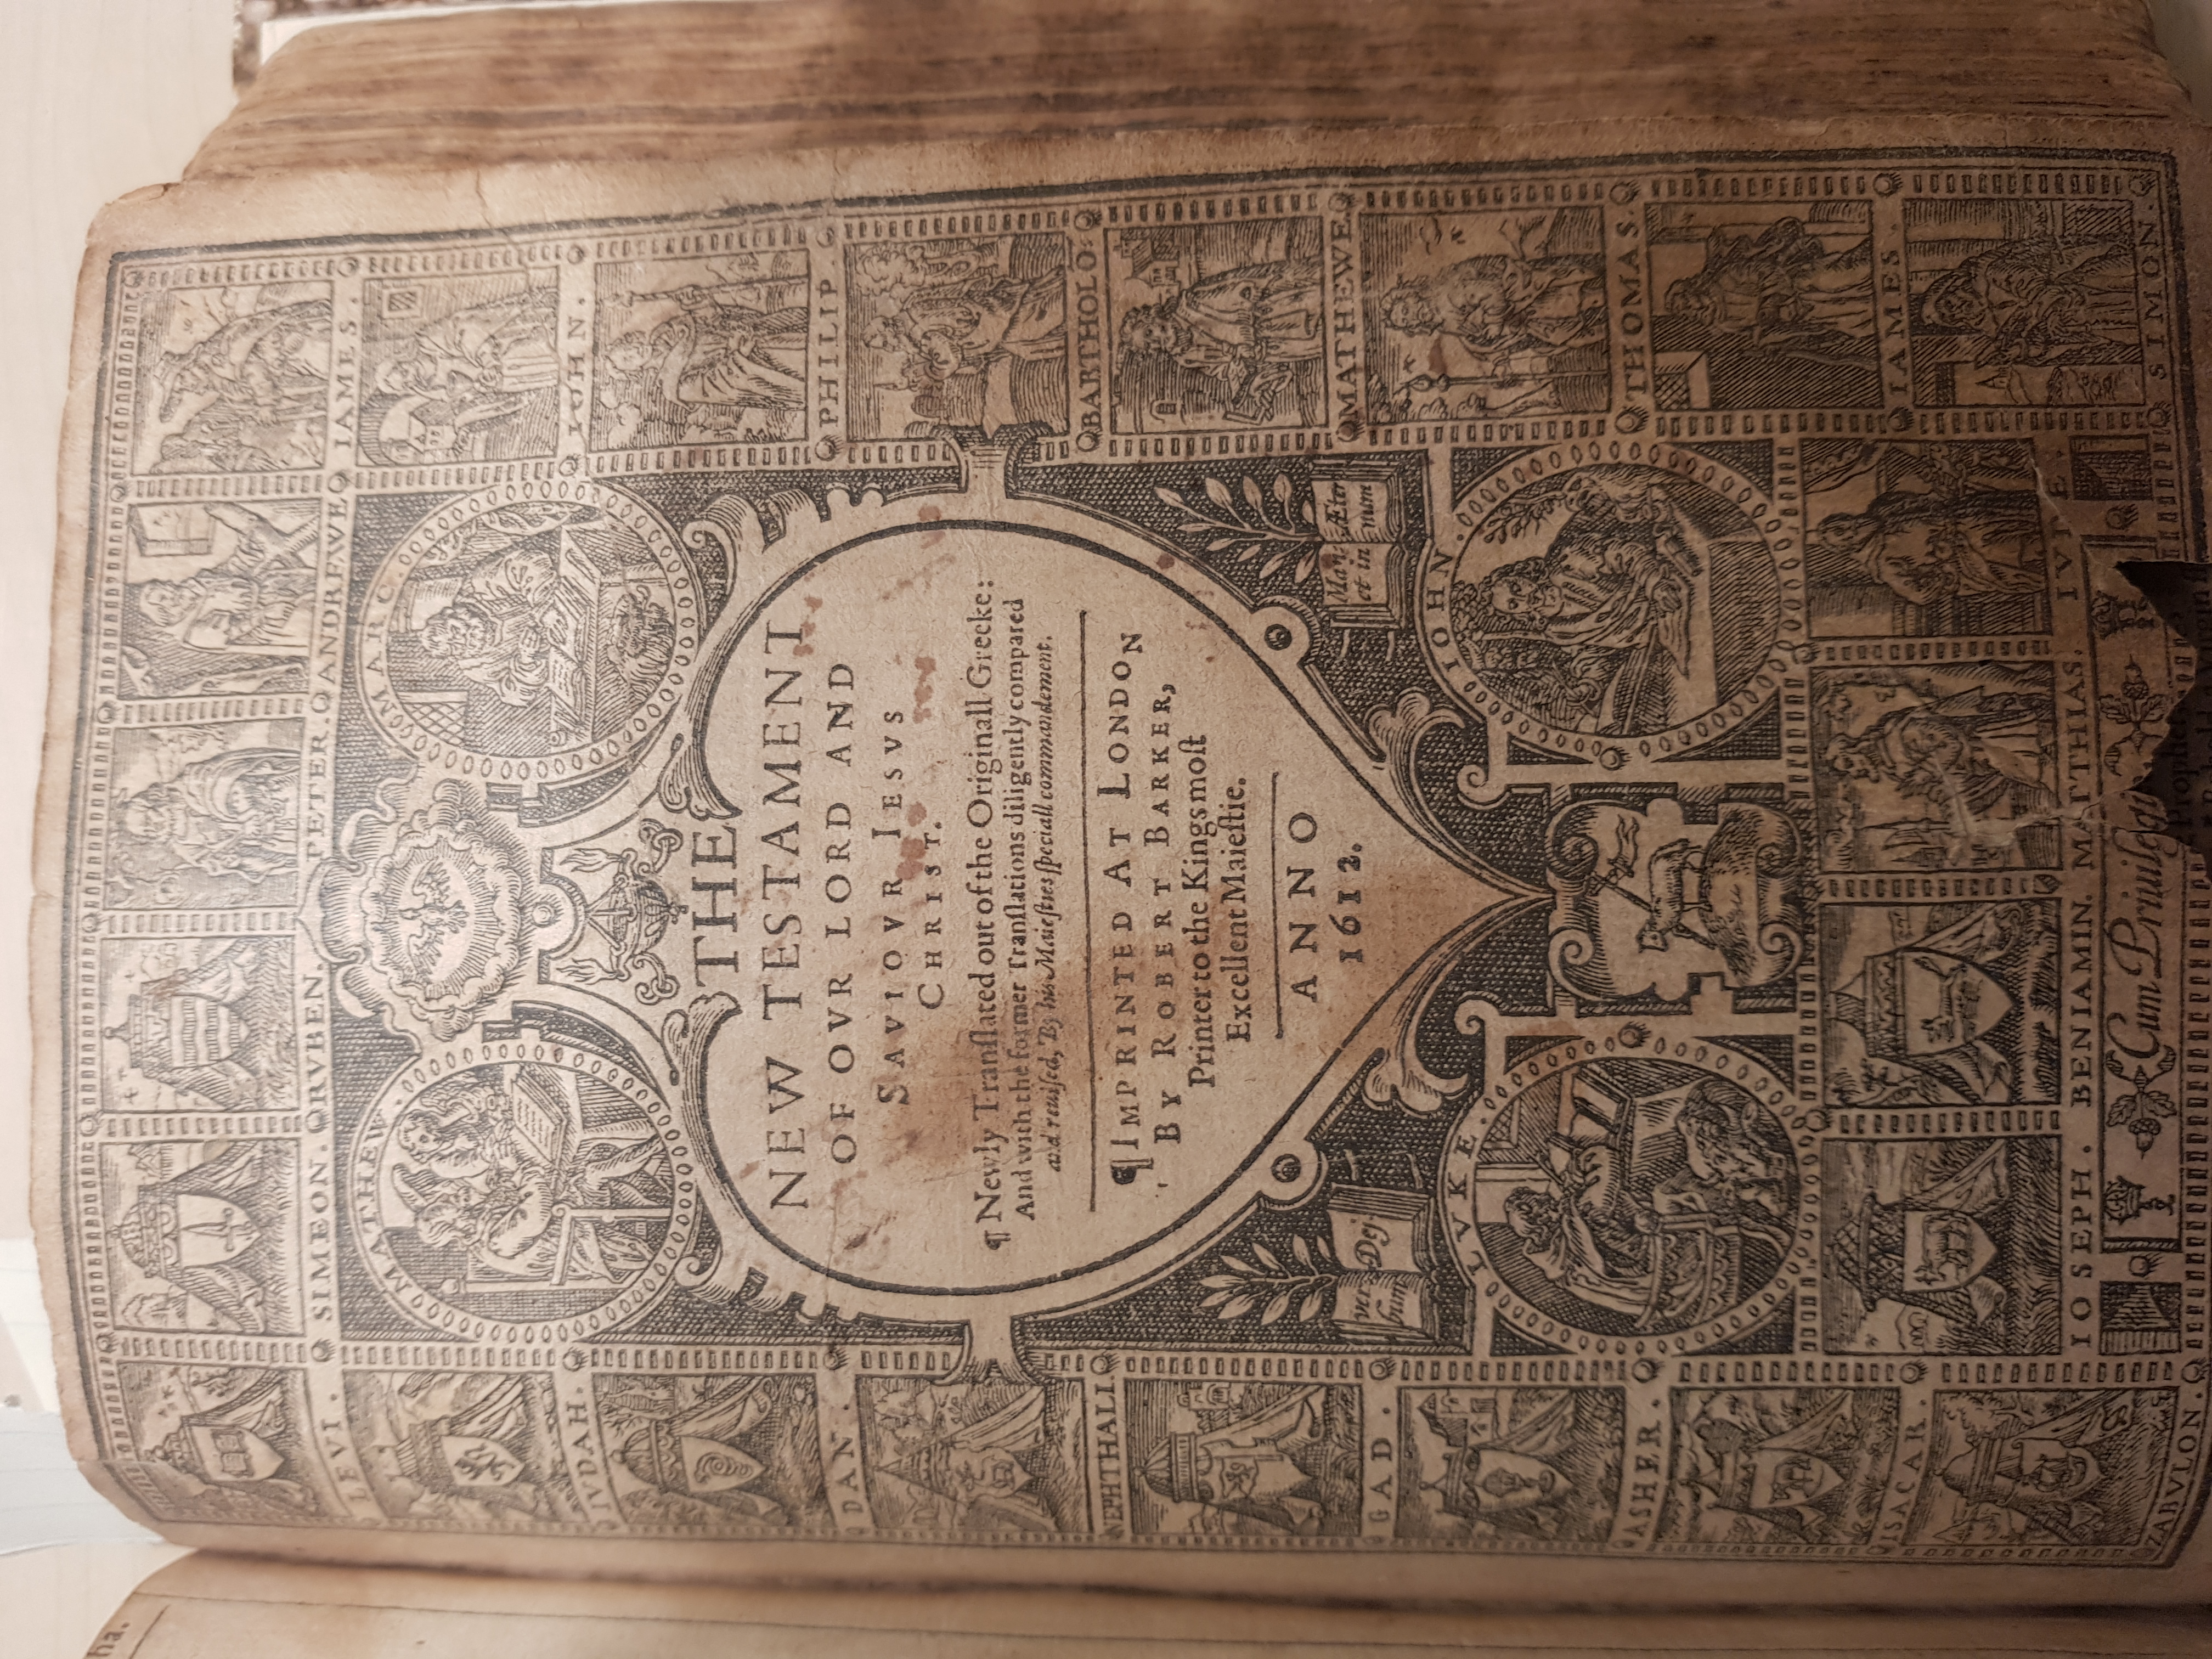 SIMEON. ORVBEN. PETER. ANDREWE
LEVI. IAMES.
MATHEW. MARC.
IVDAH. IOHN.
DAN. PHILIP.
NEPHTHALI BARTHOLO
GAD. MATHEWE
ASHER. THOMAS.
ISACAR. IAMES.
ZABVLON. SIMON.
THE
NEW TESTAMENT
OF OVR LORD AND
SAVIOVR IESVS
CHRIST.
¶ Newly Tranſlated out of the Originall Greeke:
And with the former Tranſlations diligently compared
and reuiſed, By his Maieſties ſpeciall commandement.
¶ IMPRINTED AT LONDON
BY ROBERT BARKER,
Printer to the Kings moſt
Excellent Maieſtie.
ANNO
1612.
ver Dej
bum
Manet Æter
et in num
LVKE. IOHN.
IOSEPH. BENIAMIN. MATTHIAS. IVDE.
Cum Priuileg
ha.